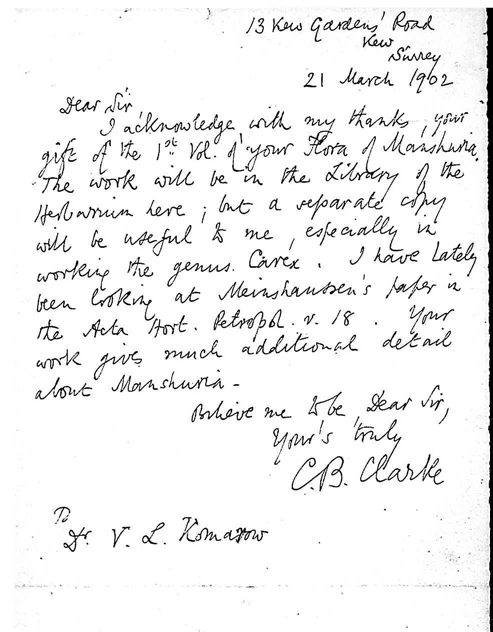 13 Kew Gardens' Road
Kew
Surrey
21 March 1902
Dear Sir
I acknowledge with my thanks, your
gift of the 1st Vol. of your Flora of Manshuria.
The work will be in the Library of the
Herbarium here; but a separate copy
will be useful to me, especially in
working the genus Carex. I have lately
been looking at Meinshausen's paper in
the Acta Hort. Petropol. v. 18. Your
work gives much additional detail
about Manshuria -
Believe me to be, Dear Sir,
Your's truly
C.B. Clarke
To
Dr. V. L. Komarow